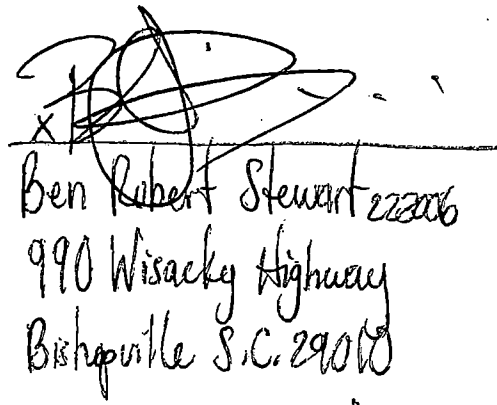 X
Ben Robert Stewart 223006
990 Wisacky Highway
Bishopville S.C. 29010